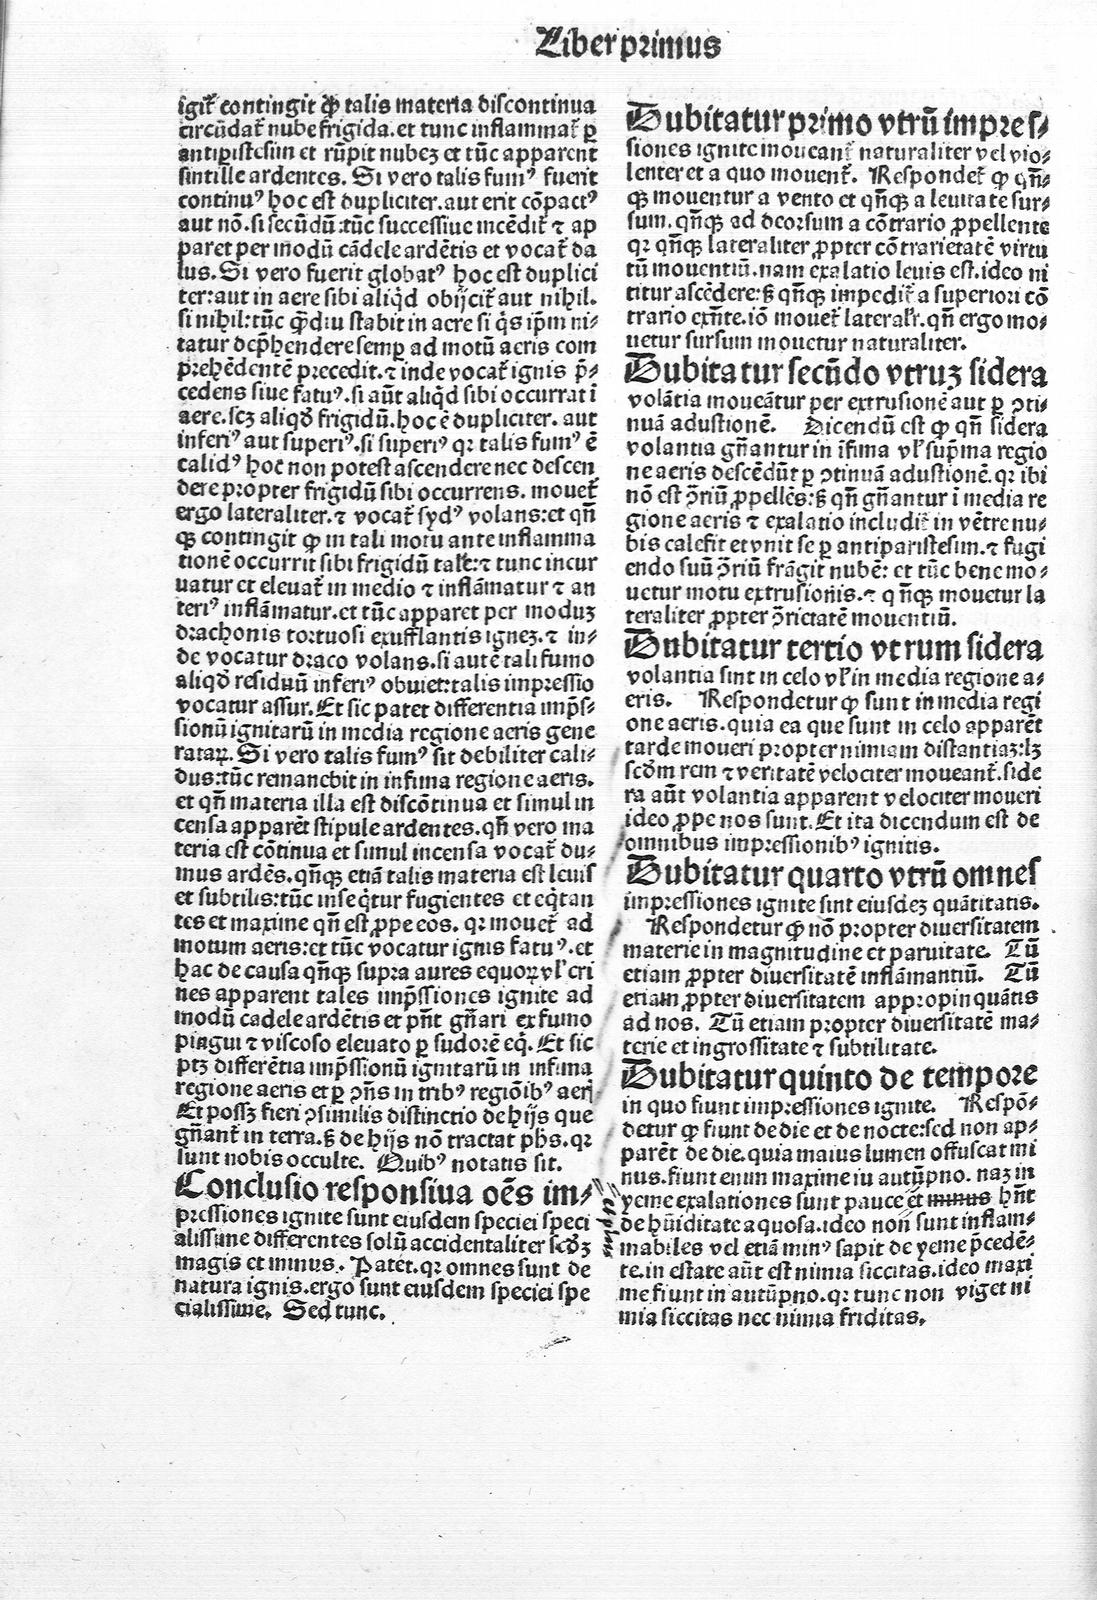 Liber primus
igit᷑ contingit ꝙ talis materia discontinua
circūdat᷑ nube frigida. et tunc inflammat᷑ ꝑ
antiꝑistesim et rūpit nubeꝫ et tūc apparent
sintille ardentes. Si vero talis fumꝰ fuerit
continuꝰ hoc est dupliciter. aut erit cōpactꝰ
aut nō. si secūdū: tūc successiue incēdit᷑ ⁊ ap
paret per modū cādele ardētis et vocat᷑ da
lus. Si vero fuerit globatꝰ hoc est duplici
ter: aut in aere sibi aliqd̄ obijcit᷑ aut nihil.
si nihil: tūc ꝙ̄diu stabit in aere si q̇s ip̄m ni⸗
tatur dep̄hendere semꝑ ad motū aeris com
prehēdentē precedit. ⁊ inde vocat᷑ ignis p̄⸗
cedens siue fatuꝰ. si aūt aliqd̄ sibi occurrat ī
aere. scꝫ aliqd̄ frigidū. hoc ē dupliciter. aut
inferiꝰ aut superiꝰ. si superiꝰ qꝛ talis fumꝰ ē
calidꝰ hoc non potest ascendere nec descen
dere propter frigidū sibi occurrens. mouet᷑
ergo lateraliter. ⁊ vocat᷑ sydꝰ volans: et qn̄
qꝫ contingit ꝙ in tali motu ante inflamma
tionē occurrit sibi frigidū tale: ⁊ tunc incur
uatur et eleuat᷑ in medio ⁊ inflāmatur ⁊ an
teriꝰ inflāmatur. et tūc apparet per moduꝫ
drachonis tortuosi exufflantis igneꝫ. ⁊ in⸗
de vocatur draco volans. si autē tali fumo
aliqd̄ residuū inferiꝰ obuiet: talis impressio
vocatur assur. Et sic patet differentia imp̄s⸗
sionū ignitarū in media regione aeris gene
rataꝝ. Si vero talis fumꝰ sit debiliter cali⸗
dus: tūc remanebit in infima regione aeris.
et qn̄ materia illa est discōtinua et simul in
censa apparēt stipule ardentes. qn̄ vero ma
teria est cōtinua et simul incensa vocat᷑ du⸗
mus ardēs. qn̄qꝫ etiā talis materia est leuis
et subtilis: tūc inseq̄tur fugientes et eq̇tan
tes et maxime qn̄ est ꝓpe eos. qꝛ mouet᷑ ad
motum aeris: et tūc vocatur ignis fatuꝰ. et
hac de causa qn̄qꝫ supra aures equoꝝ vl̓ cri
nes apparent tales imp̄ssiones ignite ad
modū cādele ardētis et pn̄t gn̄ari ex fumo
pingui ⁊ viscoso eleuato ꝑ sudorē eq̇. Et sic
ptꝫ differētia imp̄ssionū ignitarū in infima
regione aeris et ꝑ ↄn̄s in tribꝰ regiōibꝰ aerꝭ
Et possꝫ fieri ↄsimilis distinctio de hijs que
gn̄ant᷑ in terra. sꝫ de hijs nō tractat ph̄s. qꝛ
sunt nobis occulte. Quibꝰ notatis sit.
Conclusio responsiua oēs im⸗
pressiones ignite sunt eiusdem speciei speci
alissime differentes solū accidentaliter scd̄ꝫ
magis et minus. Patet. qꝛ omnes sunt de
natura ignis. ergo sunt eiusdem speciei spe
cialissime. Sed tunc.
Dubitatur primo vtrū impres⸗
siones ignite moueant᷑ naturaliter vel vio⸗
lenter et a quo mouent᷑. Respondet᷑ ꝙ qn̄⸗
qꝫ mouentur a vento et qn̄qꝫ a leuitate sur⸗
sum. qn̄qꝫ ad deorsum a cōtrario ꝓpellente
qꝛ qn̄qꝫ lateraliter ꝓpter cōtrarietatē virtu
tū mouentiū. nam exalatio leuis est. ideo ni
titur ascēdere: sꝫ qn̄qꝫ impedit᷑ a superiori cō
trario exn̄te. iō mouet᷑ lateralr̓. qn̄ ergo mo⸗
uetur sursum mouetur naturaliter.
Dubitatur secūdo vtruꝫ sidera
volātia moueātur per extrusionē aut ꝑ ↄti⸗
nuā adustionē. Dicendū est ꝙ qn̄ sidera
volantia gn̄antur in īfima vl̓ sup̄ma regio
ne aeris descēdūt ꝑ ↄtinuā adustionē. qꝛ ibi
nō est ↄ̄riū ꝓpellēs: sꝫ qn̄ gn̄antur ī media re
gione aeris ⁊ exalatio includit᷑ in vētre nu⸗
bis calefit et vnit se ꝑ antiparistesim. ⁊ fugi
endo suū ↄ̄riū frāgit nubē: et tūc bene mo⸗
uetur motu extrusionis. ⁊ qn̄qꝫ mouetur la
teraliter ꝓpter ↄ̄rietatē mouentiū.
Dubitatur tertio vtrum sidera
volantia sint in celo vl̓ in media regione a⸗
eris. Respondetur ꝙ sunt in media regi
one aeris. quia ea que sunt in celo apparēt
tarde moueri propter nimiam distantiaꝫ: lꝫ
scd̄m rem ⁊ veritatē velociter moueant᷑. side
ra aūt volantia apparent velociter moueri
ideo ꝓpe nos sunt. Et ita dicendum est de
omnibus impressionibꝰ ignitis.
Dubitatur quarto vtrū omnes
impressiones ignite sint eiusdeꝫ quātitatis.
Respondetur ꝙ nō propter diuersitatem
materie in magnitudine et paruitate. Tū
etiam ꝓpter diuersitatē inflāmantiū. Tū
etiam ꝓpter diuersitatem appropinquātis
ad nos. Tū etiam propter diuersitatē ma⸗
terie et ingrossitate ⁊ subtilitate.
Dubitatur quinto de tempore
in quo fiunt impressiones ignite. Respō⸗
detur ꝙ fiunt de die et de nocte: sed non ap⸗
parēt de die. quia maius lumen offuscat mi
nus. fiunt enim maxime in autūpno. naꝫ in
yeme exalationes sunt pauce et minus hn̄t
de hūiditate aquosa. ideo non sunt inflam⸗
mabiles vel etiā minꝰ sapit de yeme p̄cedē⸗
te. in estate aūt est nimia siccitas. ideo maxi
me fiunt in autūpno. qꝛ tunc non viget ni
mia siccitas nec nimia friditas.